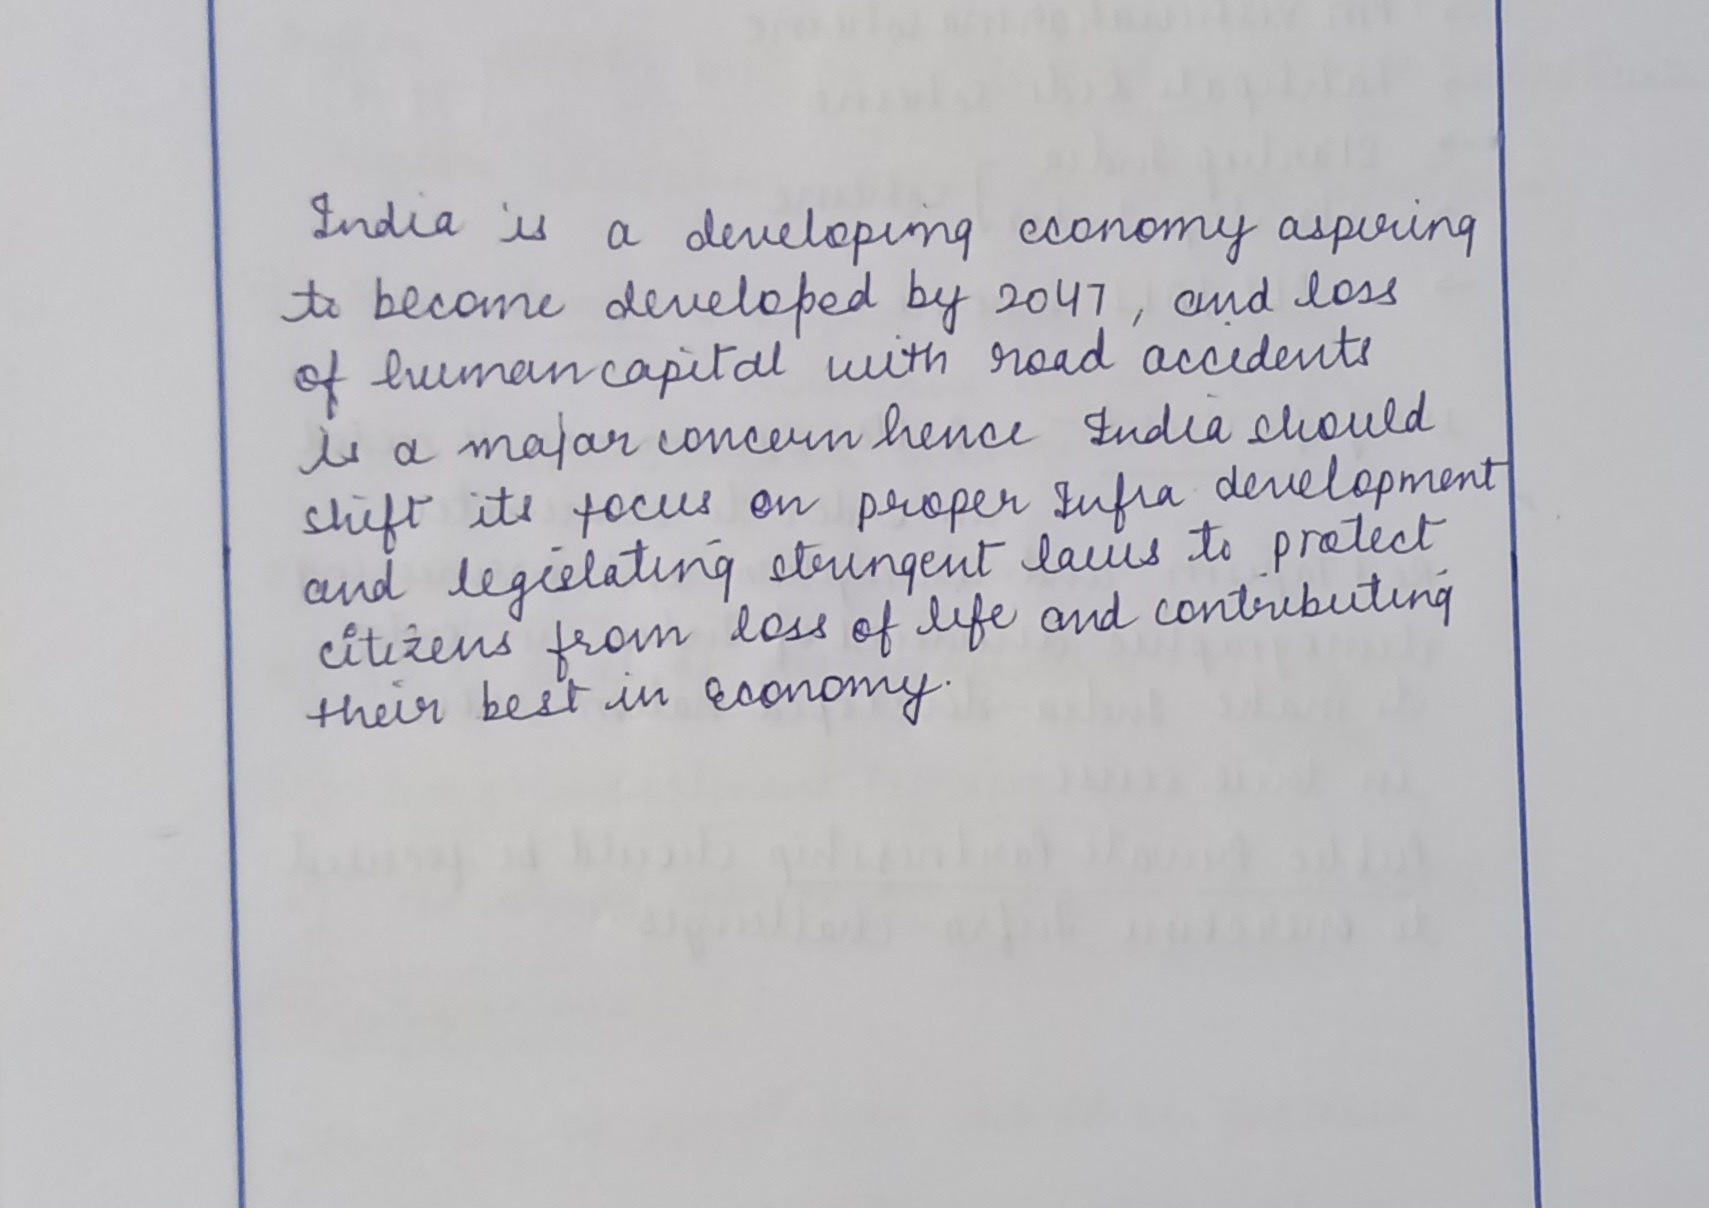 India is a developing economy aspiring
to become developed by 2047, and loss
of human capital with road accidents
is a major concern hence India should
shift its focus on proper Infra development
and legislating stringent laws to protect
citizens from loss of life and contributing
their best in economy.